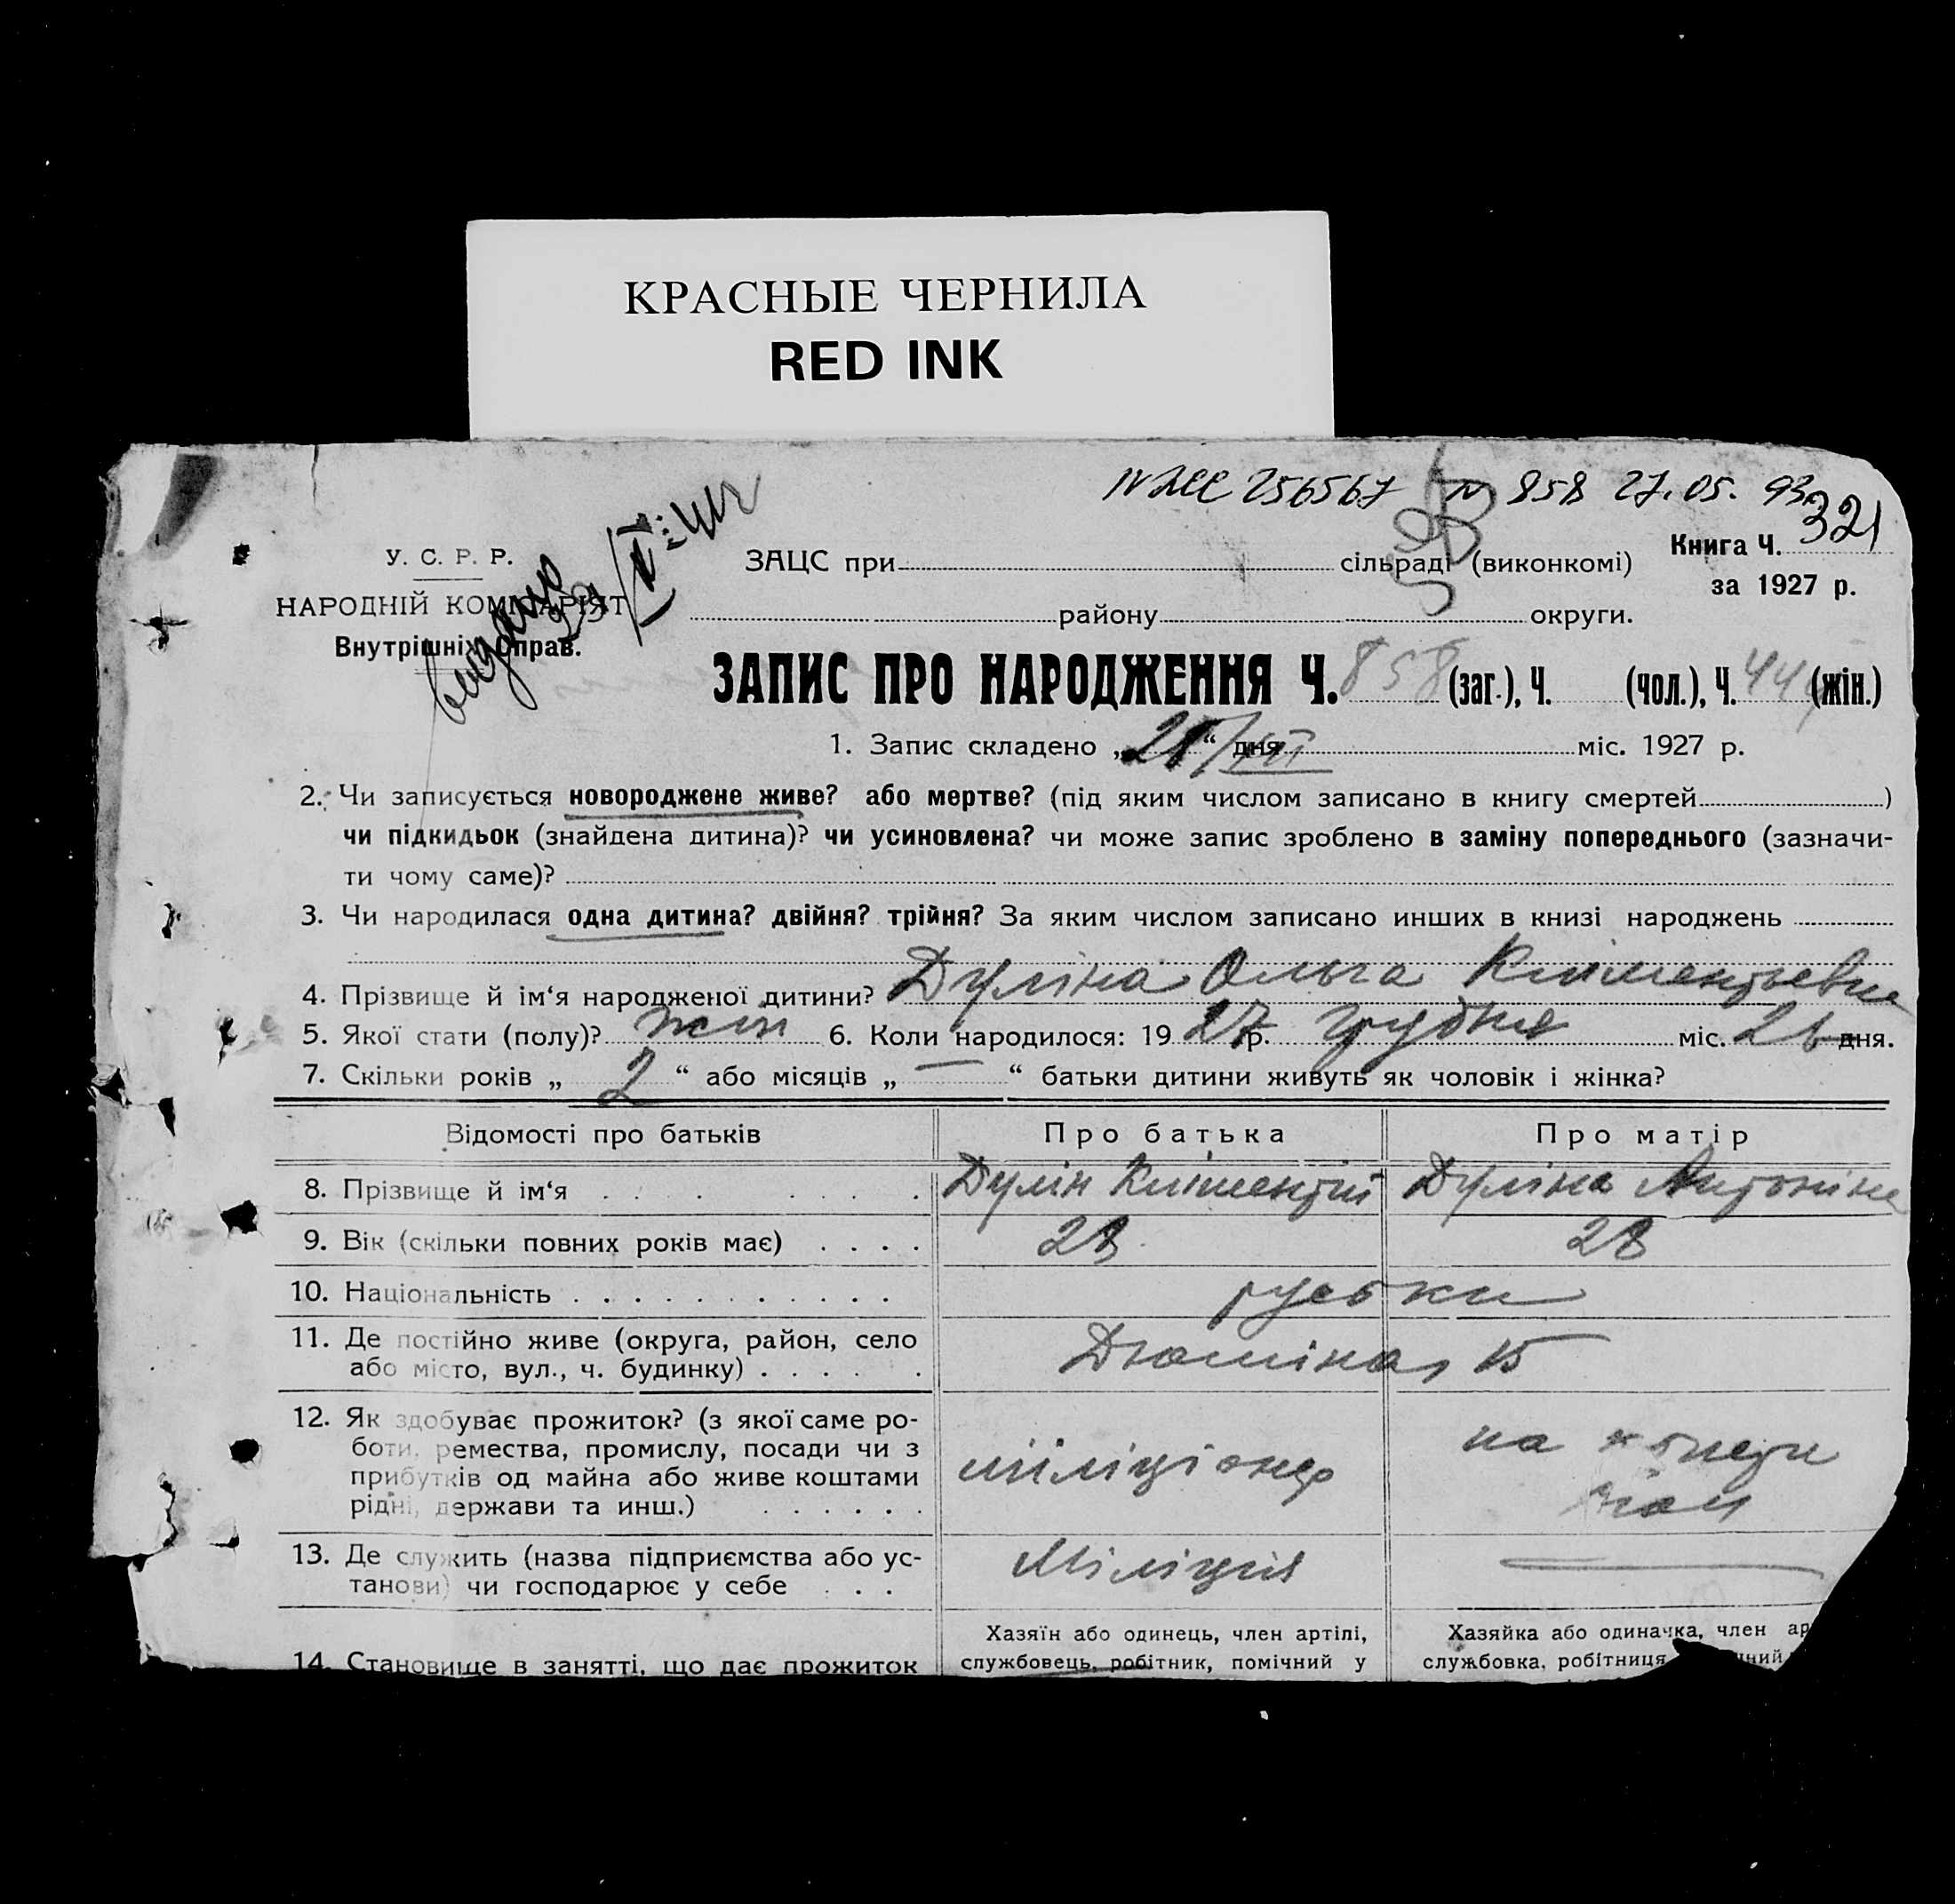 КРАСНЫЕ ЧЕРНИЛА
RED INK
256567 N 858 27.05.93
321
У. С. Р. Р.
НАРОДНІЙ КОМІСАРІЯТ
Внутрішніх Справ.
видано
ЗАЦС при сільраді (виконкомі)
Книга Ч.
за 1927 р.
району округи.
ЗАПИС ПРО НАРОДЖЕННЯ Ч. 858 (заг.), Ч. (чол.), Ч. (жін.)
1. Запис складено „ “ дня міс. 1927 р.
2. Чи записується новороджене живе? або мертве? (під яким числом записано в книгу смертей )
чи підкидьок (знайдена дитина)? чи усиновлена? чи може запис зроблено в заміну попереднього (зазначи-
ти чому саме)?
3. Чи народилася одна дитина? двійня? трійня? За яким числом записано инших в книзі народжень
4. Прізвище й ім‘я народженої дитини? Дуліна Ольга Кліментьевна
5. Якої стати (полу)? жін 6. Коли народилося: 1927 р. грудня міс. дня.
7. Скільки років „ 2 “ або місяців „ — “ батьки дитини живуть як чоловік і жінка?
Відомості про батьків Про батька Про матір
8. Прізвище й ім‘я . . . . . . . Дулін Кліментій Дуліна Антоніна
9. Вік (скільки повних років має) . . . . 28 28
10. Національність . . . . . . . . . . . руськи
11. Де постійно живе (округа, район, село
або місто, вул., ч. будинку) . . . . . Дюміна, 15
12. Як здобуває прожиток? (з якої саме ро-
боти, ремества, промислу, посади чи з
прибутків од майна або живе коштами
рідні, держави та инш.) . . . . . .
міліціонер
на
13. Де служить (назва підприємства або ус-
танови) чи господарює у себе . . . Міліція —
14. Становище в занятті, що дає прожиток
Хазяїн або одинець, член артілі,
службовець, робітник, помічний у
Хазяйка або одиначка, член
службовка, робітниця